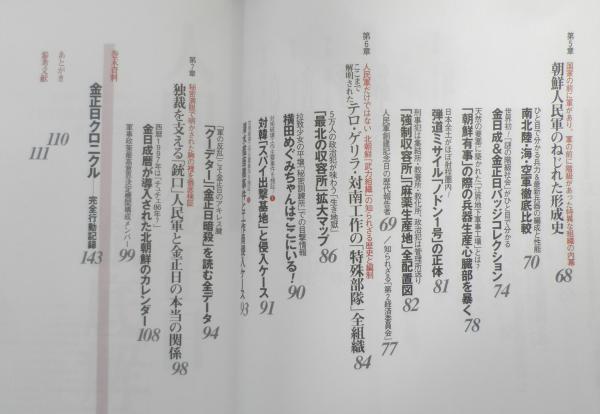 第5章
国家の前に軍があり、軍の前に階級があった特異な組織の内幕
朝鮮人民軍のねじれた形成史 68
ひと目で分かる兵力&最新兵器の編成と性能
南北陸・海・空軍徹底比較 70
世界初―「謎の階級社会」がひと目で分かる
金日成&金正日バッジコレクション 74
天然の要塞に築かれた「世界地下軍事工場」とは?
「朝鮮有事」の際の兵器生産心臓部を暴く 78
日本全土がほぼ射程圏内―
弾道ミサイル「ノドン1号」の正体 81
刑事犯は集結所・教養所・教化所、政治犯は管理所送り
「強制収容所」「麻薬生産地」全配置図 82
人民軍創建記念日の歴代報告者 69/知られざる「第2経済委員会」 77
第6章
人民軍だけではない 北朝鮮「武力組織」の知られざる歴史と編制
ここまで解明されたテロ・ゲリラ・対南工作の「特殊部隊」全組織 84
5万人の政治犯が味わう「生き地獄」
「最北の収容所」拡大マップ 86
拉致少女の平壌「秘密訓練所」での目撃情報
横田めぐみちゃんはここにいる! 90
対韓「スパイ出撃基地」と侵入ケース 91
93
「軍の反乱」こそ金正日のアキレス腱
「クーデター」「金正日暗殺」を読む全データ 94
第7章
独裁を支える「銃口」人民軍と金正日の本当の関係 98
軍事政策最高意思決定機関構成メンバー 99
西暦1997年は「チュチェ86年」?
金日成暦が導入された北朝鮮のカレンダー 108
巻末資料
金正日クロニクル――完全行動記録 143
あとがき 110
参考文献 111